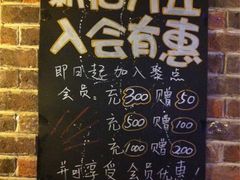 入会有惠
即日起加入聚点
会员。充300赠50
充500赠100
充1000赠200
并可享受会员优惠!